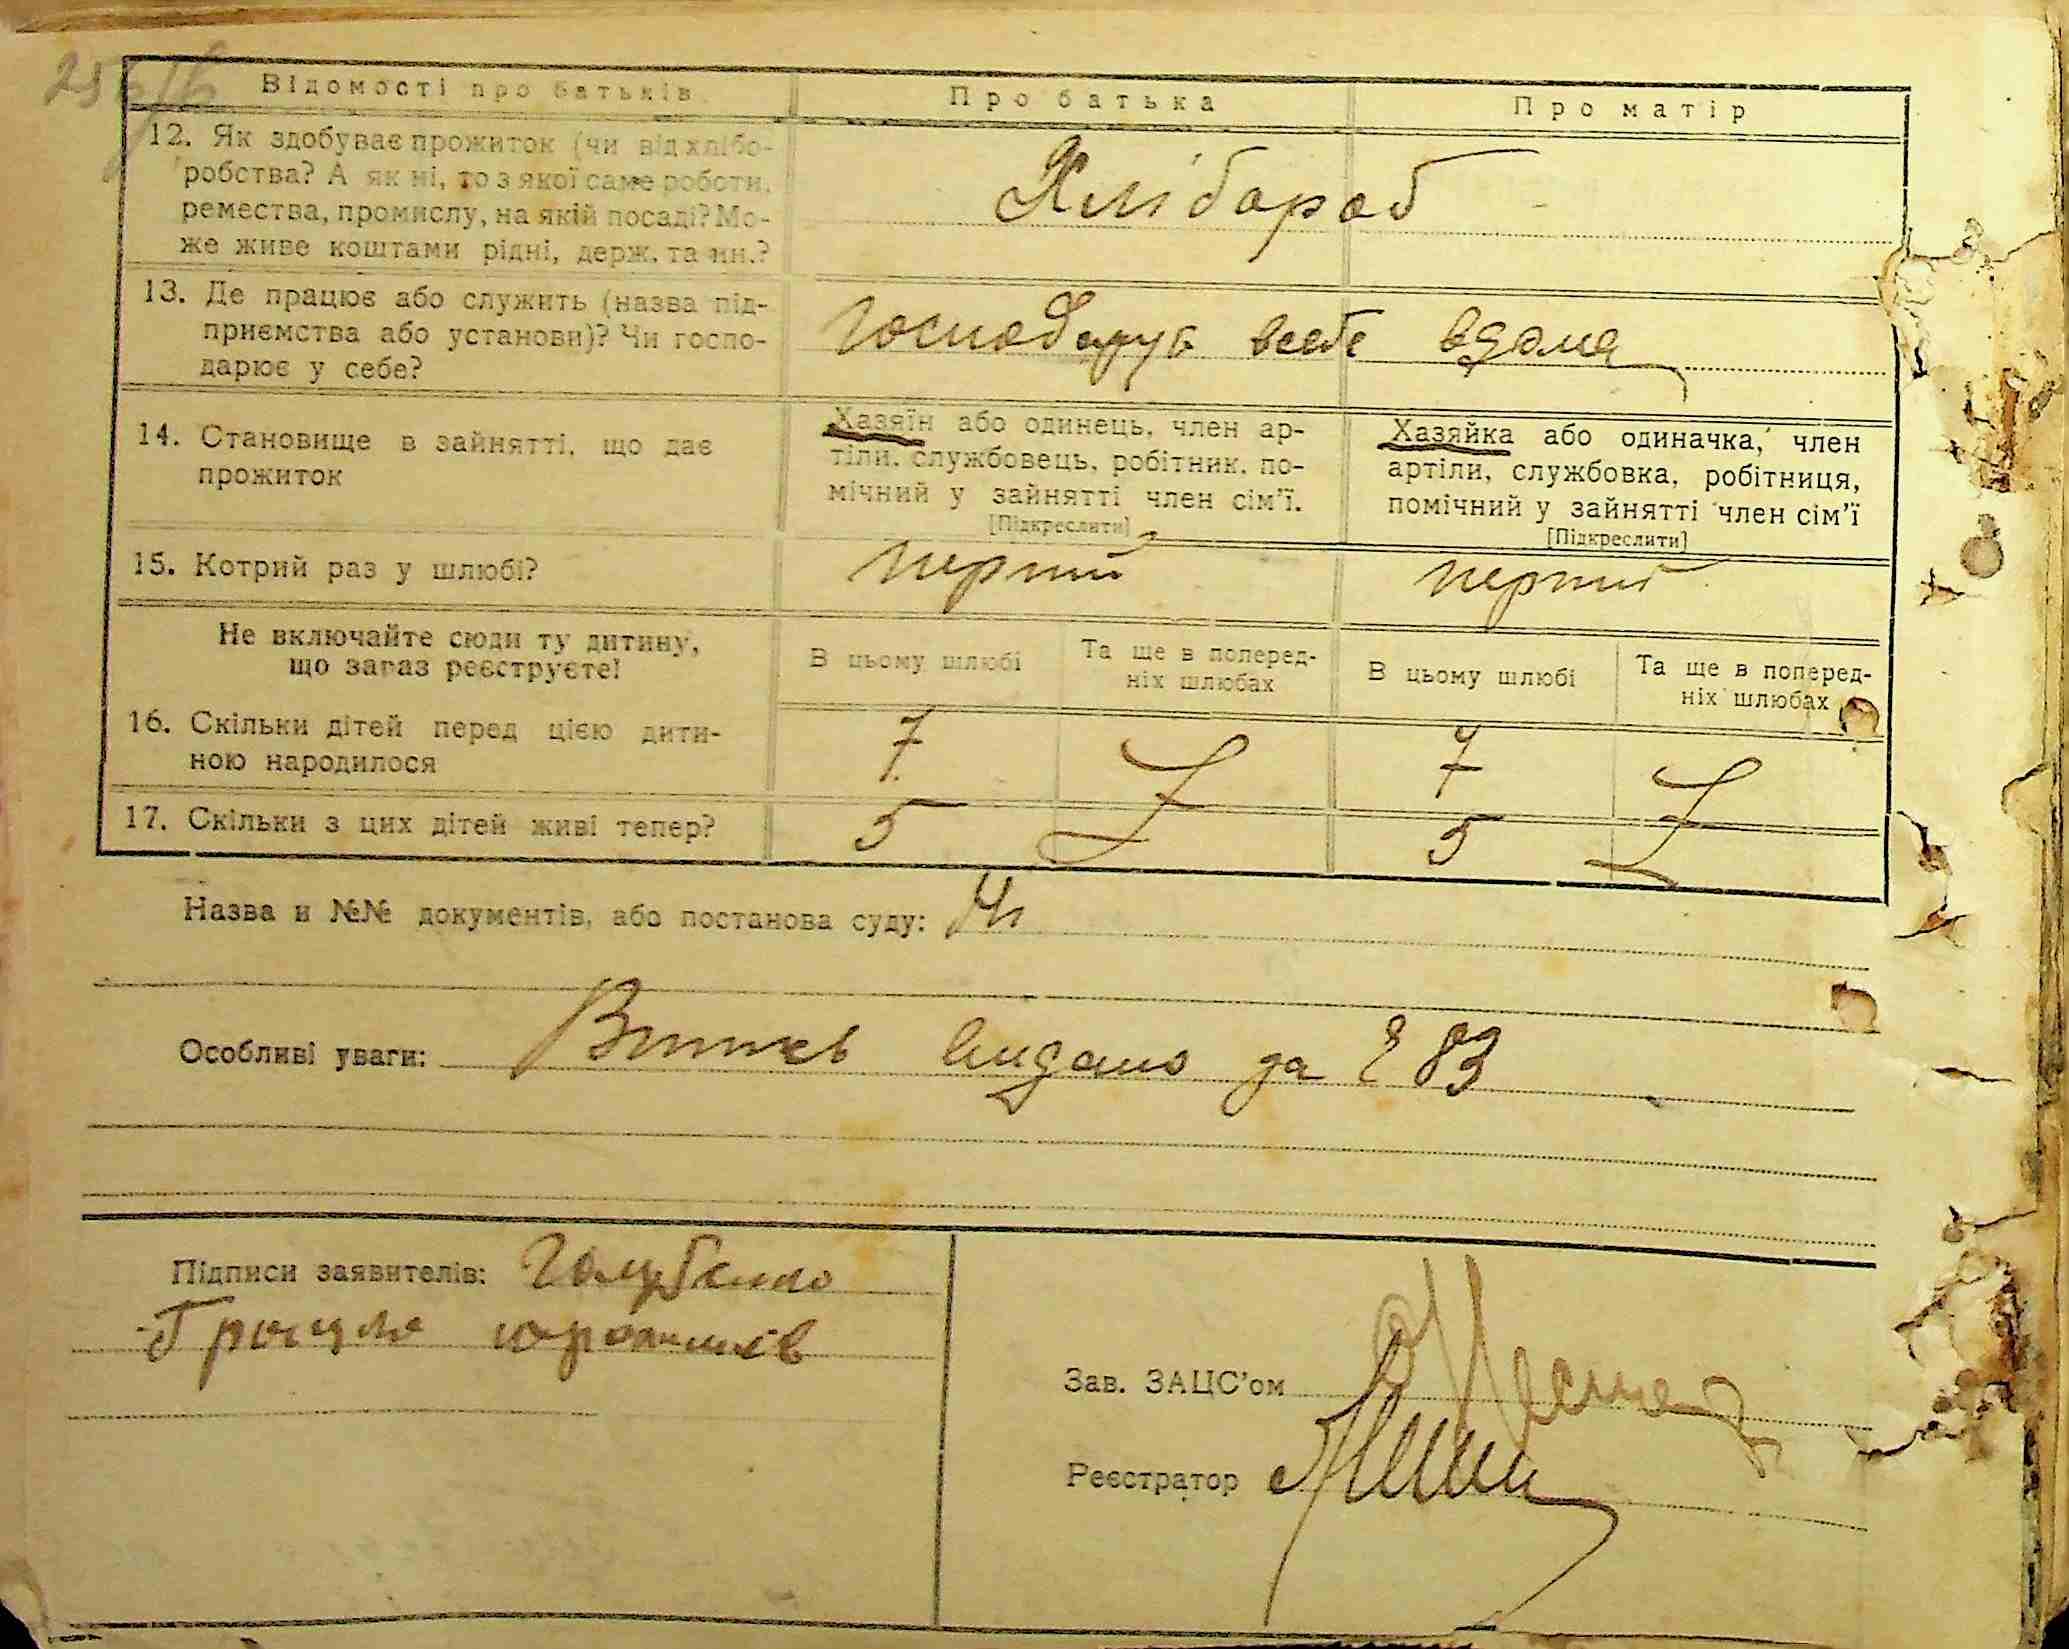 Відомості про батьків
Про батька
Про матір
12. Як здобуває прожиток (чи від хлібо-
робства? А як ні, то з якої саме роботи,
ремества, промислу, на якій посаді? Мо-
же живе коштами рідні, держ. та ин.?
Хлібороб
13. Де працює або служить (назва під-
приємства або установи)? Чи госпо-
дарює у себе?
господарує всебе вдома
14. Становище в зайнятті, що дає
прожиток
Хазяїн або одинець, член ар-
тіли, службовець, робітник, по-
мічний у зайнятті член сім'ї.
[Підкреслити]
Хазяйка або одиначка, член
артіли, службовка, робітниця,
помічний у зайнятті член сім'ї
[Підкреслити]
15. Котрий раз у шлюбі?
перший
перший
Не включайте сюди ту дитину,
що зараз реєструєте!
В цьому шлюбі
Та ще в поперед-
ніх шлюбах
В цьому шлюбі
Та ще в поперед-
ніх шлюбах
16. Скільки дітей перед цією дити-
ною народилося
7
7
17. Скільки з цих дітей живі тепер?
5
5
Назва и №№ документів, або постанова суду:
Особливі уваги: видано за 83
Підписи заявителів: Голубенко
Зав. ЗАЦС'ом
Реєстратор